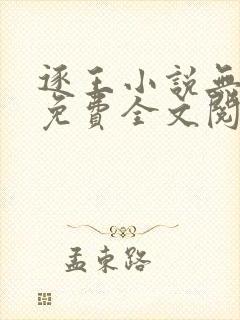 逐王小說無
免費全文閱
孟東路